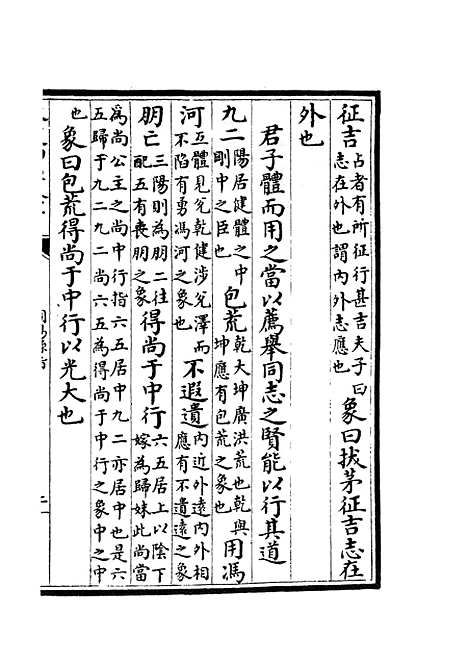 征吉占者有所征行甚吉夫子曰志在外也謂内外志應也象曰拔茅征吉志在
外也
君子體而用之當以薦舉同志之賢能以行其道
九二陽居健體之中剛中之臣也包荒乾大坤廣洪荒也乾與坤應有包荒之象也用馮
河互體見兌乾健涉兌澤而不陷有勇馮河之象也不遐遺内近外遠内外相應有不遺遠之象
朋亡三陽則為朋二往配五有喪朋之象得尚于中行六五居上以陰下嫁為歸妹此尚當
為尚公主之尚中行指六五居中九二亦居中也是六五歸于九二九二尚六五為得尚于中行之象中之中
也象曰包荒得尚于中行以光大也